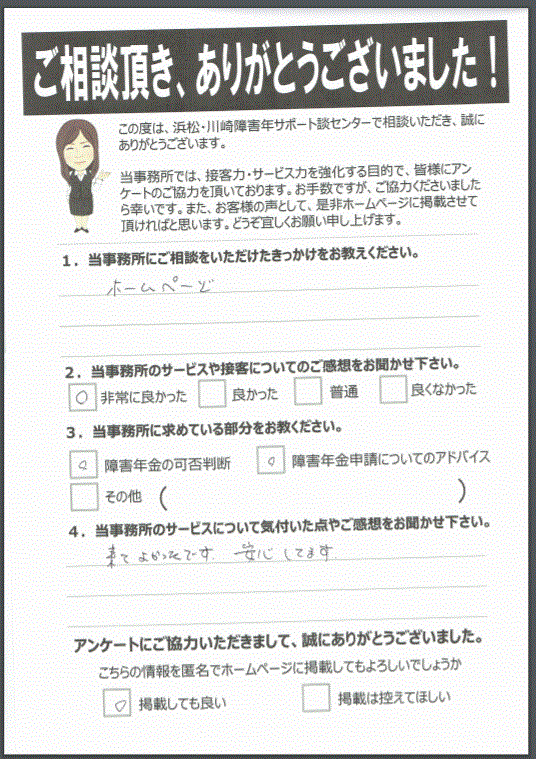 ご相談頂き、ありがとうございました！
この度は、浜松・川崎障害年サポート談センターで相談いただき、誠に
ありがとうございます。
当事務所では、接客力・サービス力を強化する目的で、皆様にアン
ケートのご協力を頂いております。お手数ですが、ご協力くださいました
ら幸いです。また、お客様の声として、是非ホームページに掲載させて
頂ければと思います。どうぞ宜しくお願い申し上げます。
１．当事務所にご相談をいただけたきっかけをお教えください。
ホームページ
２．当事務所のサービスや接客についてのご感想をお聞かせ下さい。
○ 非常に良かった 良かった 普通 良くなかった
３．当事務所に求めている部分をお教ください。
○ 障害年金の可否判断 ○ 障害年金申請についてのアドバイス
その他 （ ）
４．当事務所のサービスについて気付いた点やご感想をお聞かせ下さい。
来てよかったです。安心してます
アンケートにご協力いただきまして、誠にありがとうございました。
こちらの情報を匿名でホームページに掲載してもよろしいでしょうか
○ 掲載しても良い 掲載は控えてほしい